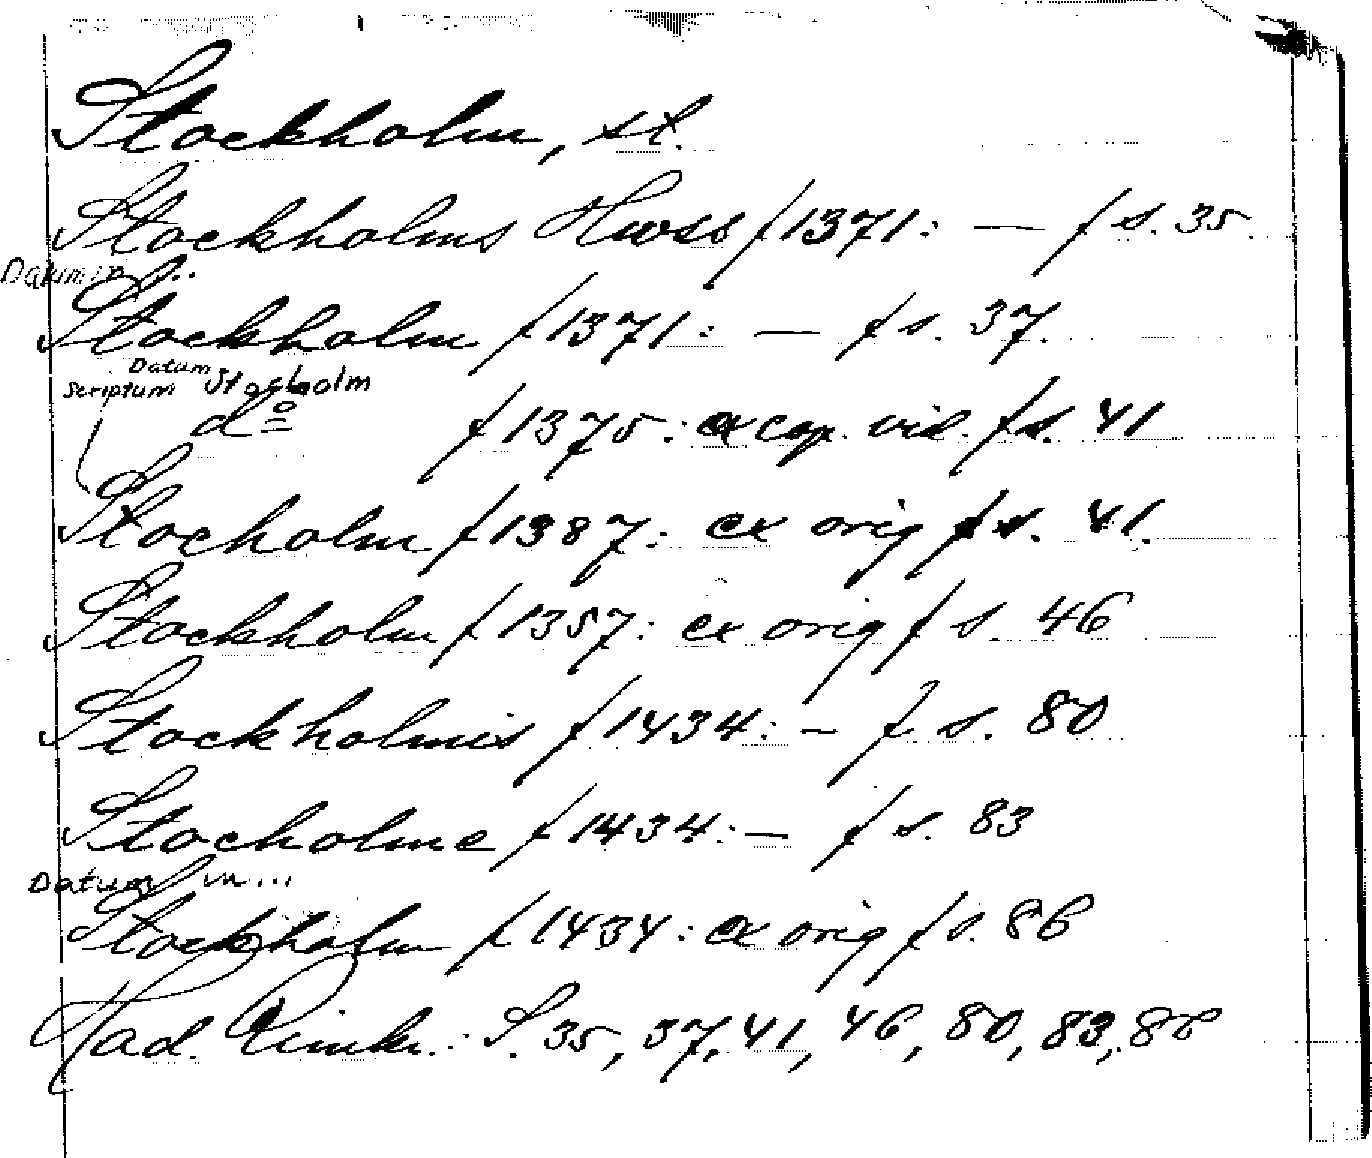 Stockholm, st.
Stockholms Hwss f 1371: — f s. 35
Datum in ...
Stockholm f 1371: — f s. 37.
Datum Stocholm
Scriptum
do f 1375: ex cop. vid. f s. 41
Stocholm f 1387: ex orig f s. 41.
Stockholm f 1357: ex orig f s. 46
Stockholmis f 1434: — f s. 80
Stocholme f 1434: — f s. 83
Datum in ...
Stockholm f 1434: ex orig f s. 86
Had. Rimkr.: S. 35, 37, 41, 46, 80, 83, 86